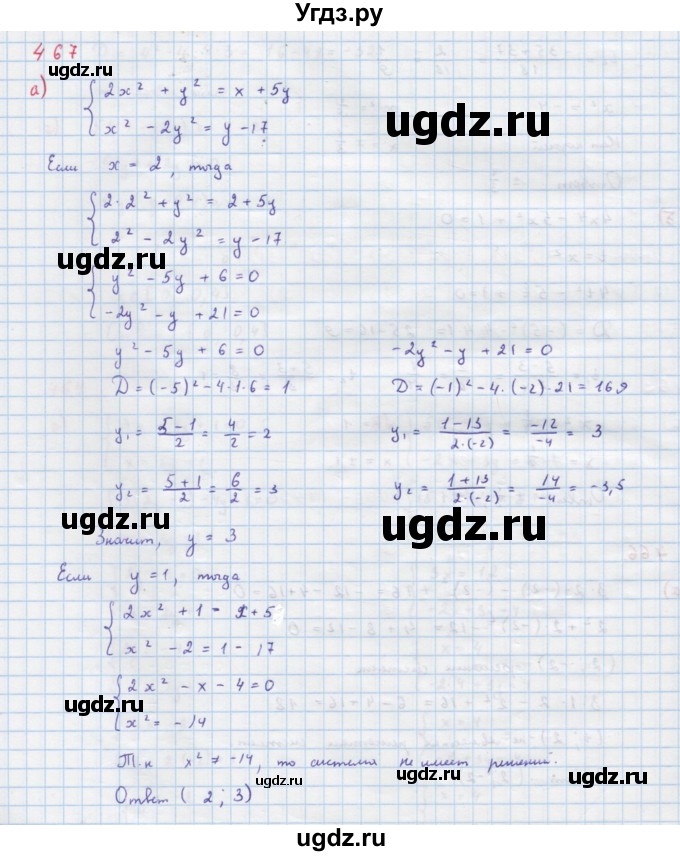 Угдз.ру
467
ugdz.ru
а) { 2x² + y² = x + 5y
x² - 2y² = y - 17
ugdz.ru
ugdz.ru
Если x = 2, тогда
{ 2·2² + y² = 2 + 5y
2² - 2y² = y - 17
ugdz.ru
{ y² - 5y + 6 = 0
-2y² - y + 21 = 0
ugdz.ru
y² - 5y + 6 = 0 -2y² - y + 21 = 0
D = (-5)² - 4·1·6 = 1 D = (-1)² - 4·(-2)·21 = 169
y₁ = 5-1/2 = 4/2 = 2 y₁ = 1-13/2·(-2) = -12/-4 = 3
y₂ = 5+1/2 = 6/2 = 3 y₂ = 1+13/2·(-2) = 14/-4 = -3,5
ugdz.ru
ugdz.ru
Значит, y = 3
Если y = 1, тогда
{ 2x² + 1 = x + 5
x² - 2 = 1 - 17
ugdz.ru
ugdz.ru
{ 2x² - x - 4 = 0
x² = -14
Т.к x² ≠ -14, то система не имеет решений.
ugdz.ru
ugdz.ru
Ответ (2; 3)
ugdz.ru
ugdz.ru